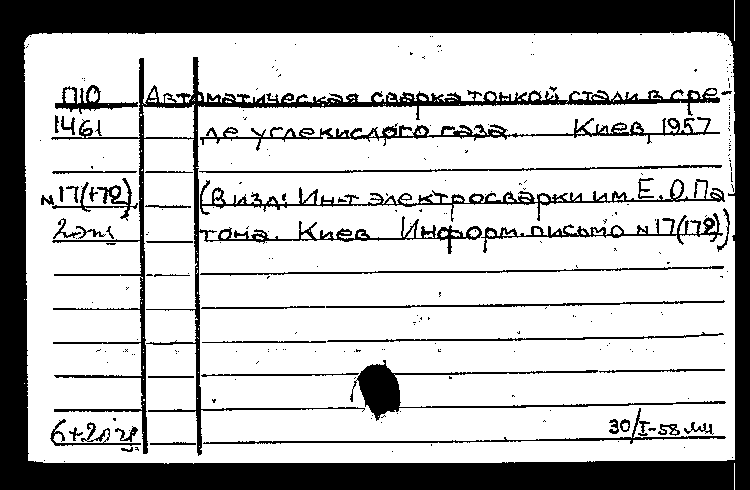 П10 Автоматическая сварка тонкой стали в сре-
1461 де углекислого газа. Киев, 1957
N 17(172). (В изд: Ин-т электросварки им. Е. О. Па-
2 экз тона. Киев Информ. письмо N 17(172))
30/I-58